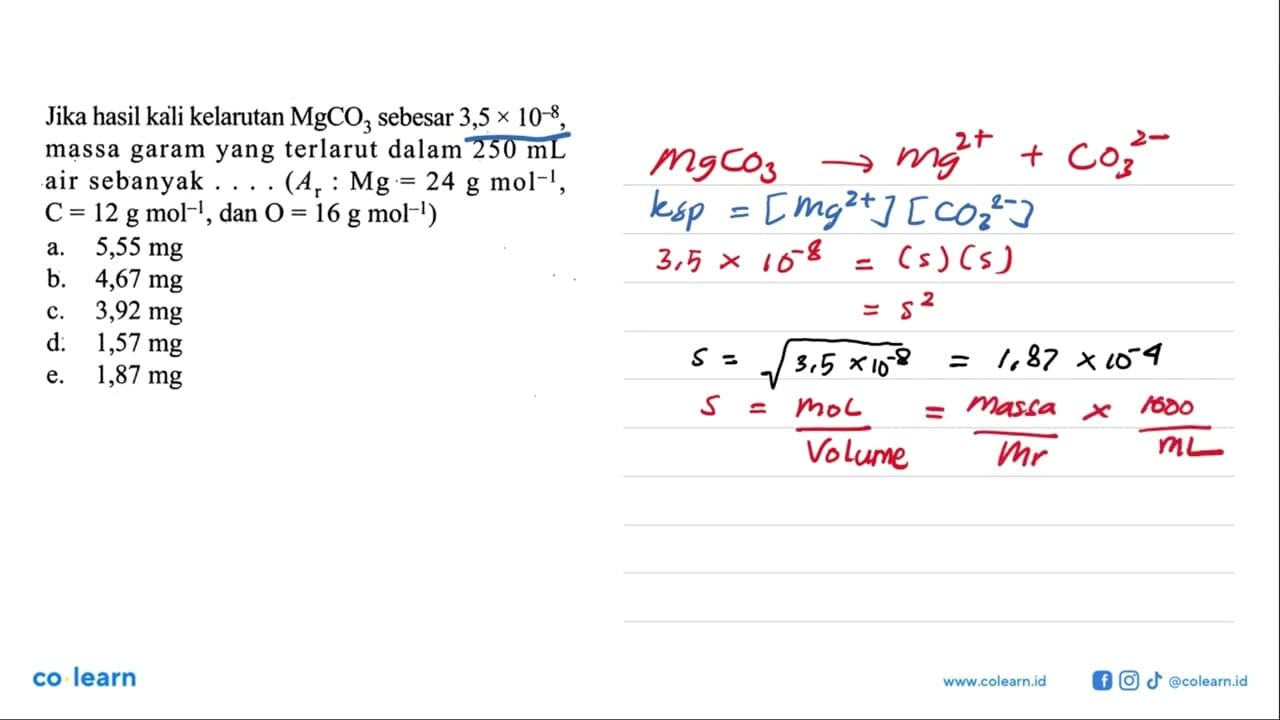 Jika hasil kali kelarutan MgCO₃ sebesar 3,5 × 10⁻⁸,
massa garam yang terlarut dalam 250 mL
air sebanyak . . . . (Aᵣ : Mg = 24 g mol⁻¹,
C = 12 g mol⁻¹, dan O = 16 g mol⁻¹)
a. 5,55 mg
b. 4,67 mg
c. 3,92 mg
d. 1,57 mg
e. 1,87 mg
MgCO₃ → Mg²⁺ + CO₃²⁻
ksp = [Mg²⁺] [CO₂²⁻]
3,5 × 10⁻⁸ = (s) (s)
= s²
s = √3,5 × 10⁻⁸ = 1,87 × 10⁻⁴
s = mol / Volume = Massa / Mr × 1000 / mL
co learn
www.colearn.id
@colearn.id